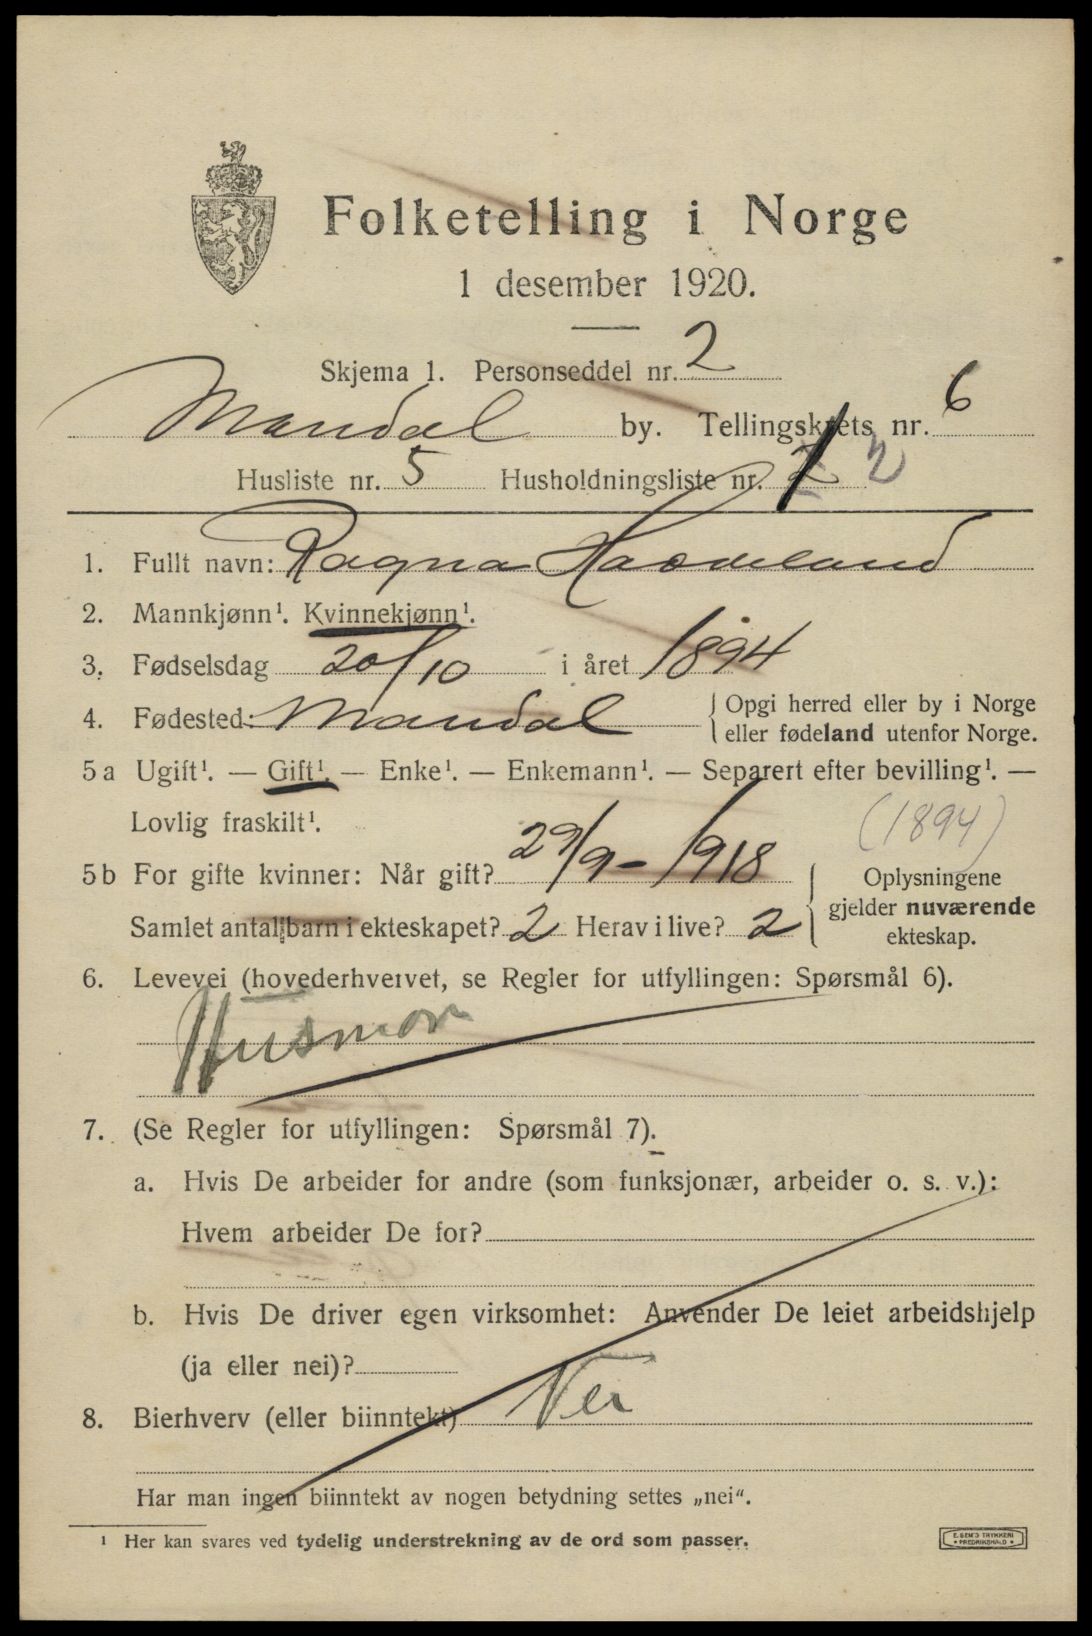 Folketelling i Norge
1 desember 1920.
Skjema 1. Personseddel nr. 2
Mandal by. Tellingskrets nr. 6
Husliste nr. 5 Husholdningsliste nr. 2
1. Fullt navn: Ragna
2. Mannkjønn¹. Kvinnekjønn¹.
3. Fødselsdag 20/10 i året 1894
4. Fødested: Mandal { Opgi herred eller by i Norge
eller fødeland utenfor Norge.
5 a Ugift¹. — Gift¹. — Enke¹. — Enkemann¹. — Separert efter bevilling¹. —
Lovlig fraskilt¹. (1894)
5 b For gifte kvinner: Når gift? 29/9 - 1918 Oplysningene
gjelder nuværende
Samlet antall barn i ekteskapet? 2 Herav i live? 2
ekteskap.
6. Levevei (hovederhvervet, se Regler for utfyllingen: Spørsmål 6).
Husmor
7. (Se Regler for utfyllingen: Spørsmål 7).
a. Hvis De arbeider for andre (som funksjonær, arbeider o. s. v.):
Hvem arbeider De for?
b. Hvis De driver egen virksomhet: Anvender De leiet arbeidshjelp
(ja eller nei)?
8. Bierhverv (eller biinntekt) Nei
Har man ingen biinntekt av nogen betydning settes „nei“.
¹ Her kan svares ved tydelig understrekning av de ord som passer.
E. SEM'S TRYKKERI
• FREDRIKSHALD •